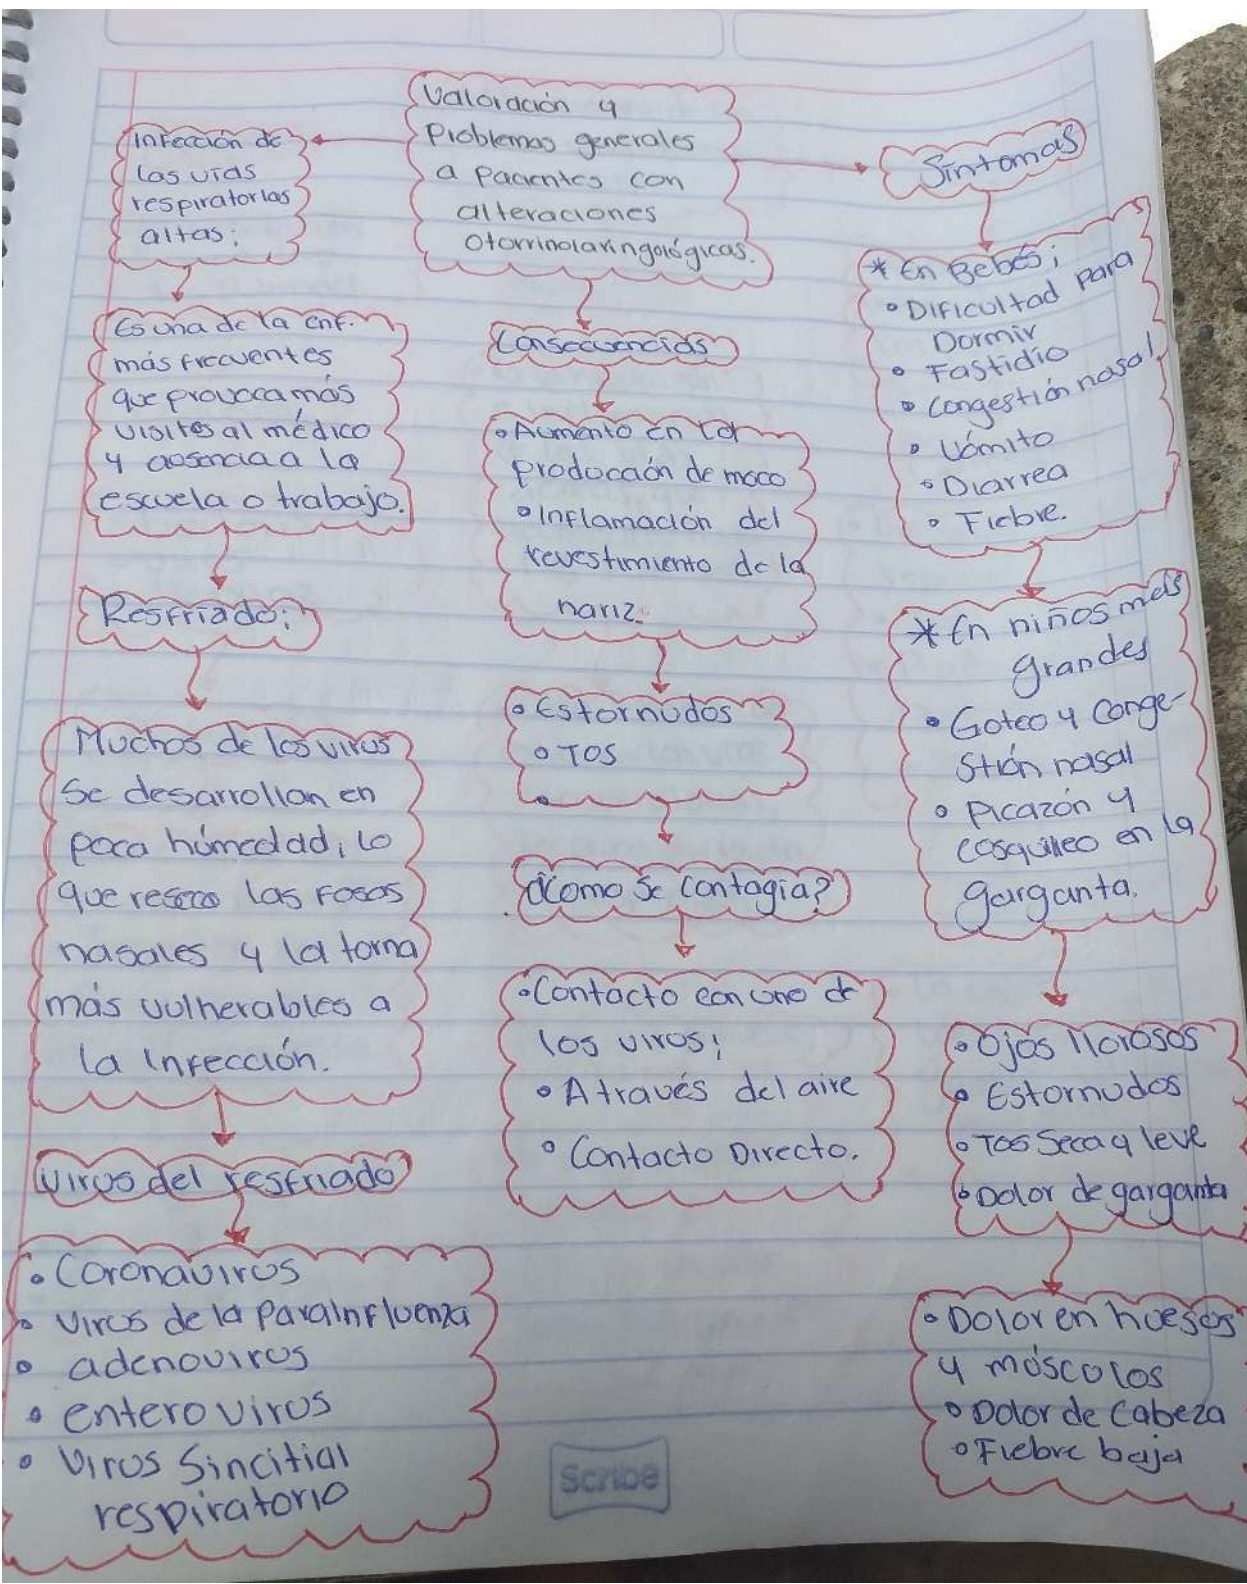 Valoración y
Problemas generales
a pacientes con
alteraciones
otorrinolaringológicas.
Infección de
las vías
respiratorias
altas:
Es una de la enf.
más frecuentes
que provoca más
visitas al médico
y ausencia a la
escuela o trabajo.
Resfriado:
Muchos de los virus
se desarrollan en
poca húmedad, lo
que reseca las fosas
nasales y la torna
más vulnerables a
la infección.
Virus del resfriado
• Coronavirus
• Virus de la Parainfluenza
• adenovirus
• enterovirus
• Virus Sincitial
respiratorio
Consecuencias
• Aumento en la
producción de moco
• Inflamación del
revestimiento de la
nariz.
• Estornudos
• Tos
•
¿Como se contagia?
• Contacto con uno de
los virus;
• A través del aire
• Contacto Directo.
Síntomas
* En Bebés;
• Dificultad para
Dormir
• Fastidio
• Congestión nasal
• Vómito
• Diarrea
• Fiebre.
* En niños más
grandes
• Goteo y conge-
stión nasal
• Picazón y
cosquilleo en la
garganta.
• Ojos llorosos
• Estornudos
• Tos Seca y leve
• Dolor de garganta
• Dolor en huesos
y músculos
• Dolor de Cabeza
• Fiebre baja
Scribe